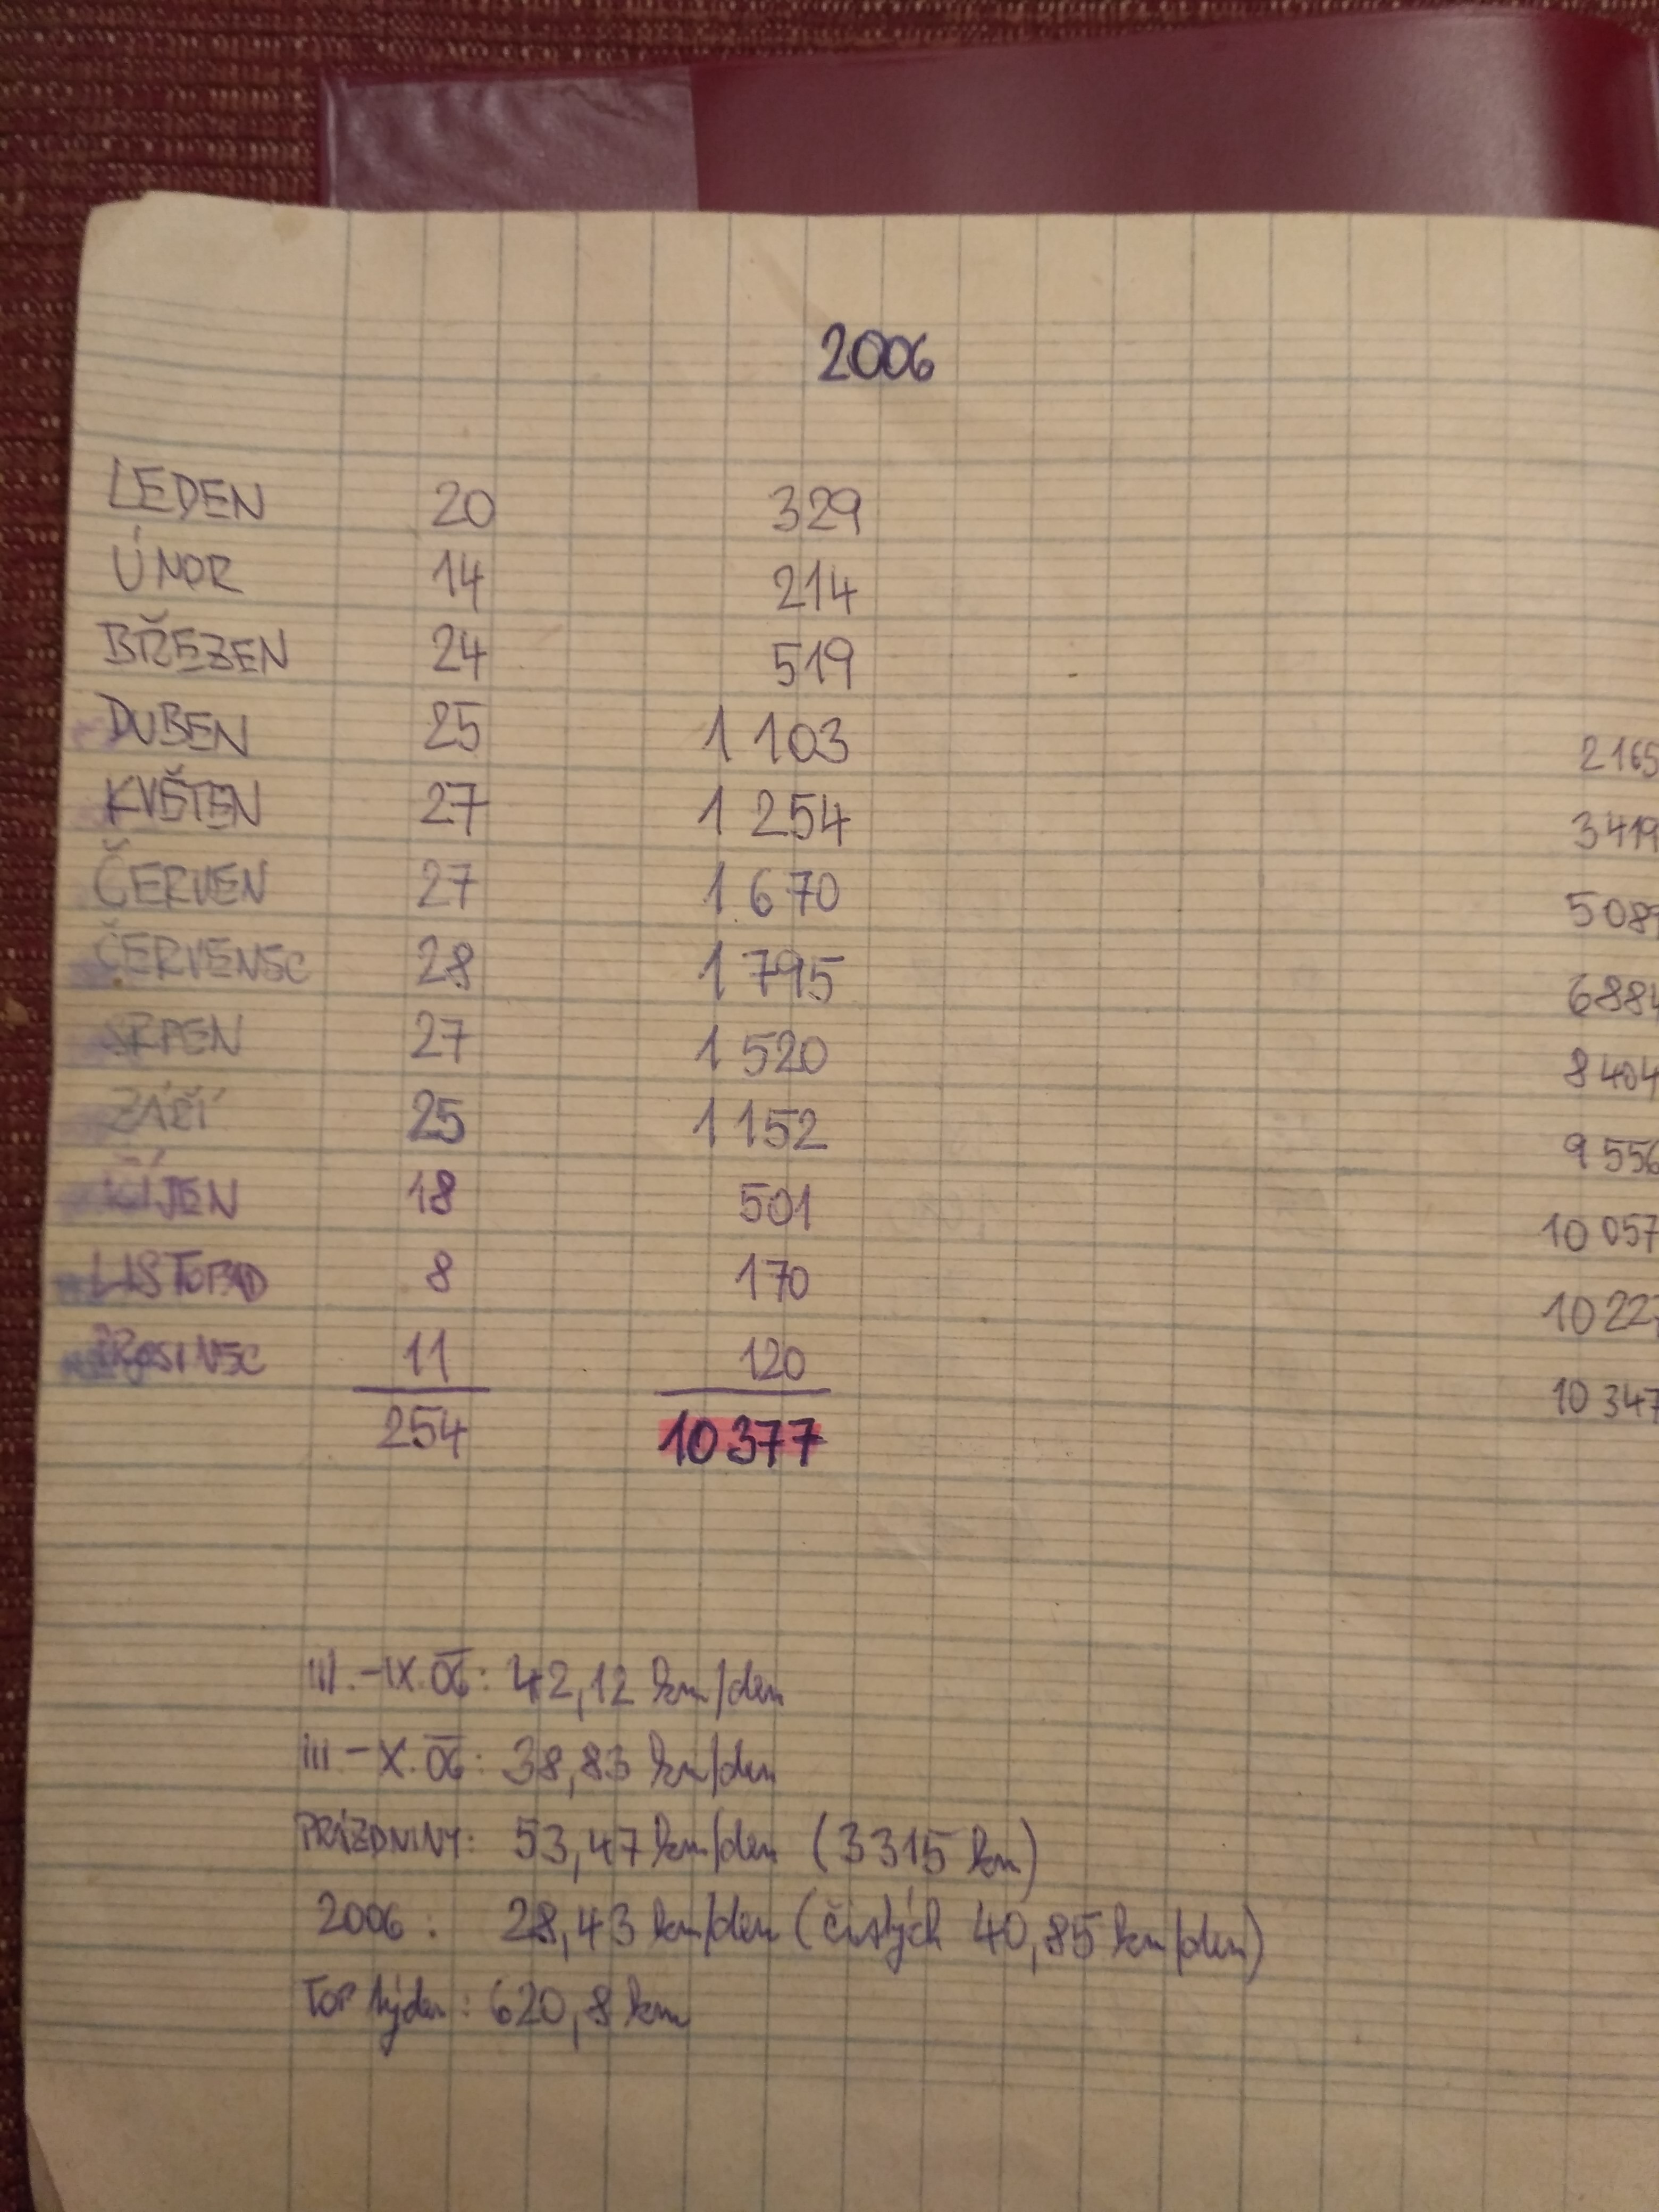 2006
LEDEN 20 329
ÚNOR 14 214
BŘEZEN 24 519
DUBEN 25 1 103 2 165
KVĚTEN 27 1 254 3 419
ČERVEN 27 1 670 5 089
ČERVENEC 28 1 795 6 884
SRPEN 27 1 520 8 404
ZÁŘÍ 25 1 152 9 556
ŘÍJEN 18 501 10 057
LISTOPAD 8 170 10 227
PROSINEC 11 120 10 347
254 10 377
III.-IX.06: 42,12 km/den
III-X.06: 38,83 km/den
PRÁZDNINY: 53,47 km/den (3315 km)
2006: 28,43 km/den (čistých 40,85 km/den)
TOP týden: 620,8 km